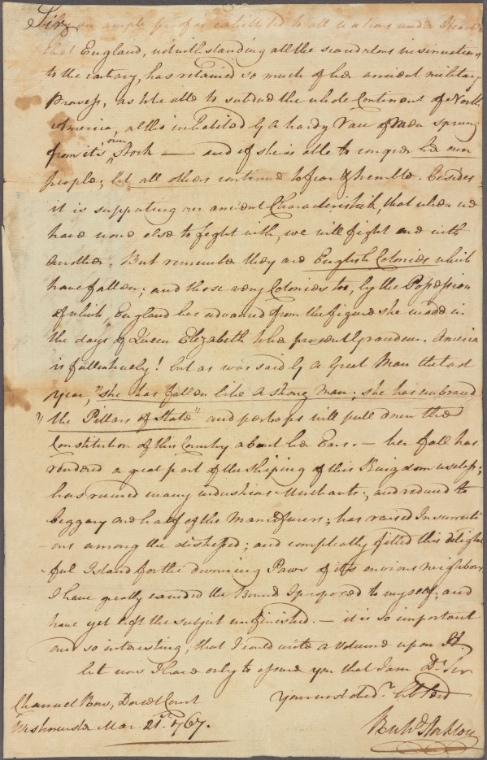 Sir, an ample proof exhibited to all nations under Heaven
that England, notwithstanding all the scandalous insinuations
to the contrary, has retained so much of her ancient military
Prowess, as to be able to subdue the whole Continent of North
America, altho inhabited by a hardy race of Men sprung
from its own Stock — and if she is able to conquer her own
people, let all others continue to fear & tremble. Besides
it is supporting our ancient Characteristick, that when we
have none else to fight with, we will fight one with
another. But remember they are English Colonies which
have fallen; and those very Colonies too, by the Possession
of which England has advanced from the figure she made in
the days of Queen Elizabeth to her present Grandeur. America
is fallen luckily! but as was said by a Great Man the last
year, "she has fallen like a strong man; she has embraced
"the Pillars of State" and perhaps will pull down the
Constitution of this Country about her Ears. — her fall has
rendered a great part of the shiping of this Kingdom useless;
has ruined many industrious Merchants, and reduced to
beggary one half of the Manufacturers; has raised Insurrecti-
ons among the distressed; and compleatly fitted this delight-
ful Island for the devouring Paws of its envious neighbours
I have greatly exceeded the Bound I proposed to myself, and
have yet left the subject unfinished. — it is so important
and so interesting, that I could write a volume upon it,
but now I have only to assure you that I am Dr Sir
Channel Row, Dorset Court
Your most obedt
Westminster Mar. 21st 1767.
Richd Stockton